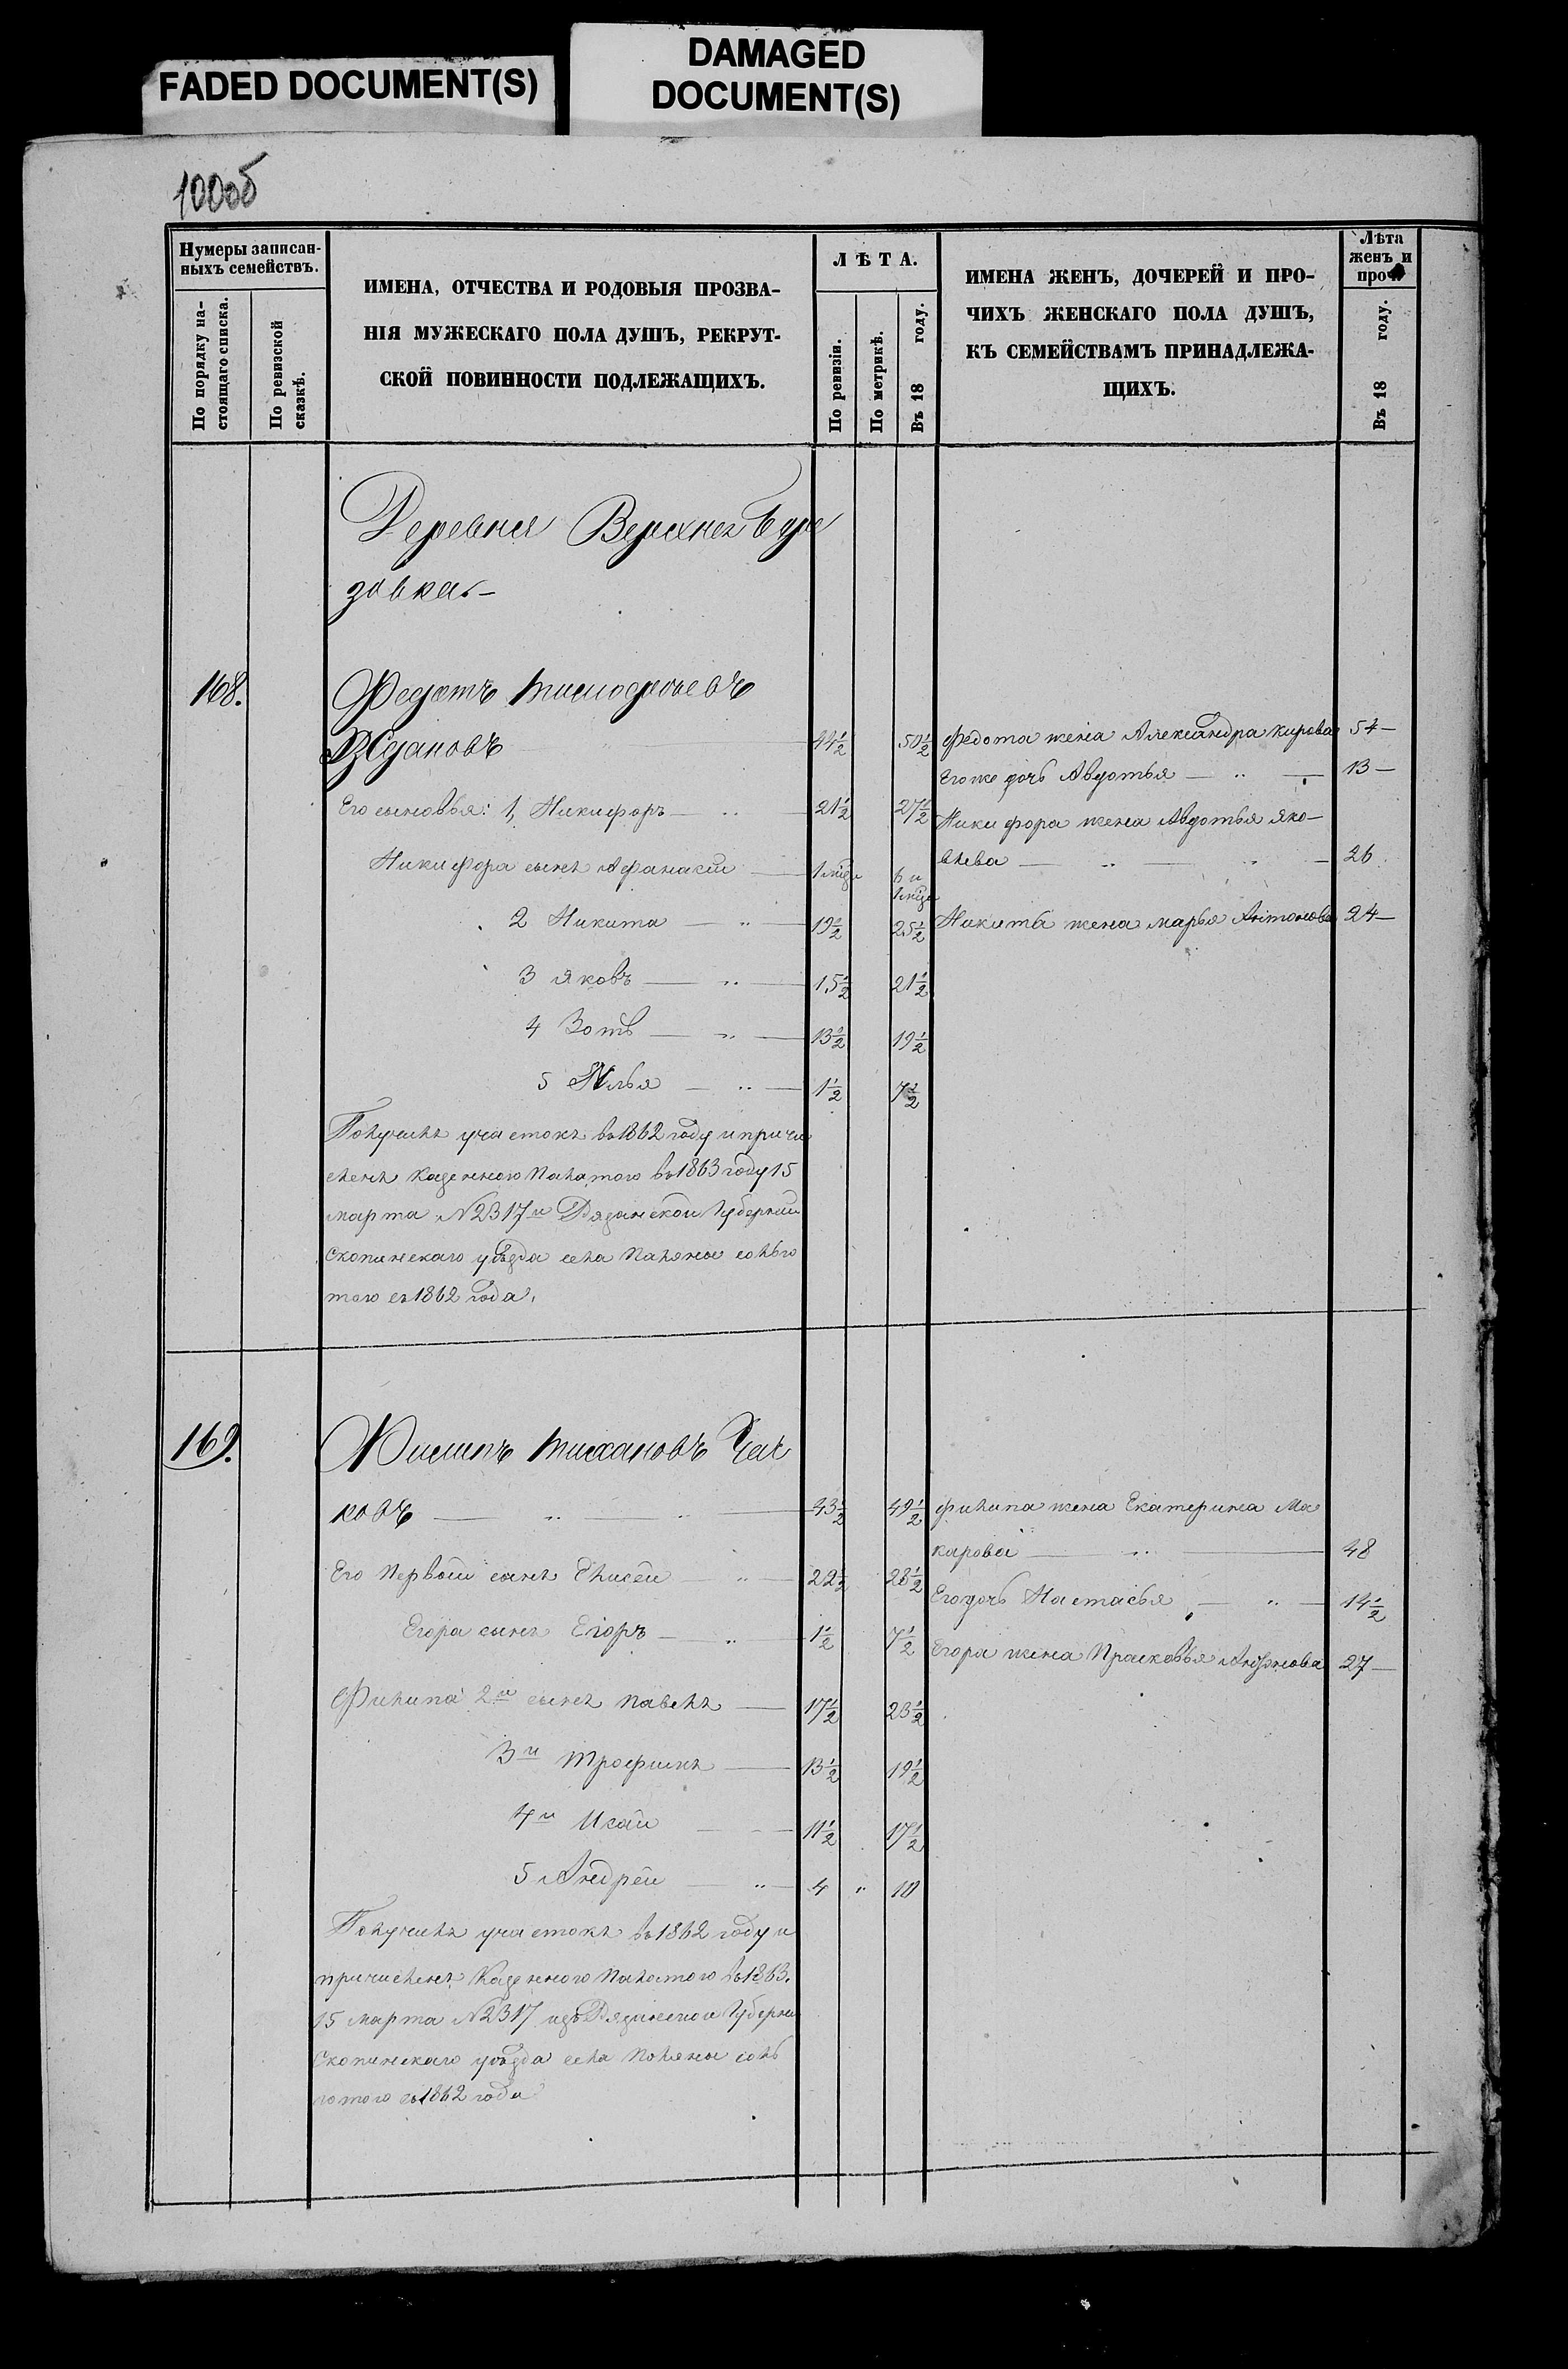 FADED DOCUMENT(S)
DAMAGED
DOCUMENT(S)
100об
Нумеры записан-
ныхъ семействъ.
По порядку на-
стоящаго списка.
По ревизской
сказкѣ.
ИМЕНА, ОТЧЕСТВА И РОДОВЫЯ ПРОЗВА-
НІЯ МУЖЕСКАГО ПОЛА ДУШЪ, РЕКРУТ-
СКОЙ ПОВИННОСТИ ПОДЛЕЖАЩИХЪ.
ЛѢТА.
По ревизіи.
По метрикѣ.
Въ 18 году.
ИМЕНА ЖЕНЪ, ДОЧЕРЕЙ И ПРО-
ЧИХЪ ЖЕНСКАГО ПОЛА ДУШЪ,
КЪ СЕМЕЙСТВАМЪ ПРИНАДЛЕЖА-
ЩИХЪ.
Лѣта
женъ и
проч.
Въ 18 году.
Деревня
зовка.
168. Федотъ Тимофеевъ
44½ 50½ Федота жена Александра Кирова 54
Его же дочь Авдотья 13
Его сыновья: 1, Никифоръ 21½ 27½ Никифора жена Авдотья Яко-
влева 26
Никифора сынъ Афанасий 1 мѣся 6 и
1 мѣся
2 Никита 19½ 25½ Никиты жена Марья Антонова 24
3 Яковъ 15½ 21½
4 Зотъ 13½ 19½
5 Илья 1½ 7½
Получилъ участокъ въ 1862 году и причи
сленъ Казенною Палатою въ 1863 году 15
марта №2317 и Рязанской Губернии
Скопинскаго уѣзда села со льго
тою съ 1862 года.
169. Филипъ Тихановъ Чал
ковъ 43½ 49½ Филипа жена Екатерина Ма
карова 48
Его первый сынъ Елисей 22½ 28½
Его дочь Настасья 14½
Егора сынъ Егоръ 1½ 7½
Егора жена Прасковья 27
Филипа 2й сынъ Павелъ 17½ 23½
3й Трофимъ 13½ 19½
4й Исай 11½ 17½
5 Андрей 4 " 10
Получилъ участокъ въ 1862 году и
причисленъ Казенною Палатою въ 1863.
15 марта №2317 изъ Рязанской Губерни
Скопинскаго уѣзда села со ль
готою съ 1862 года